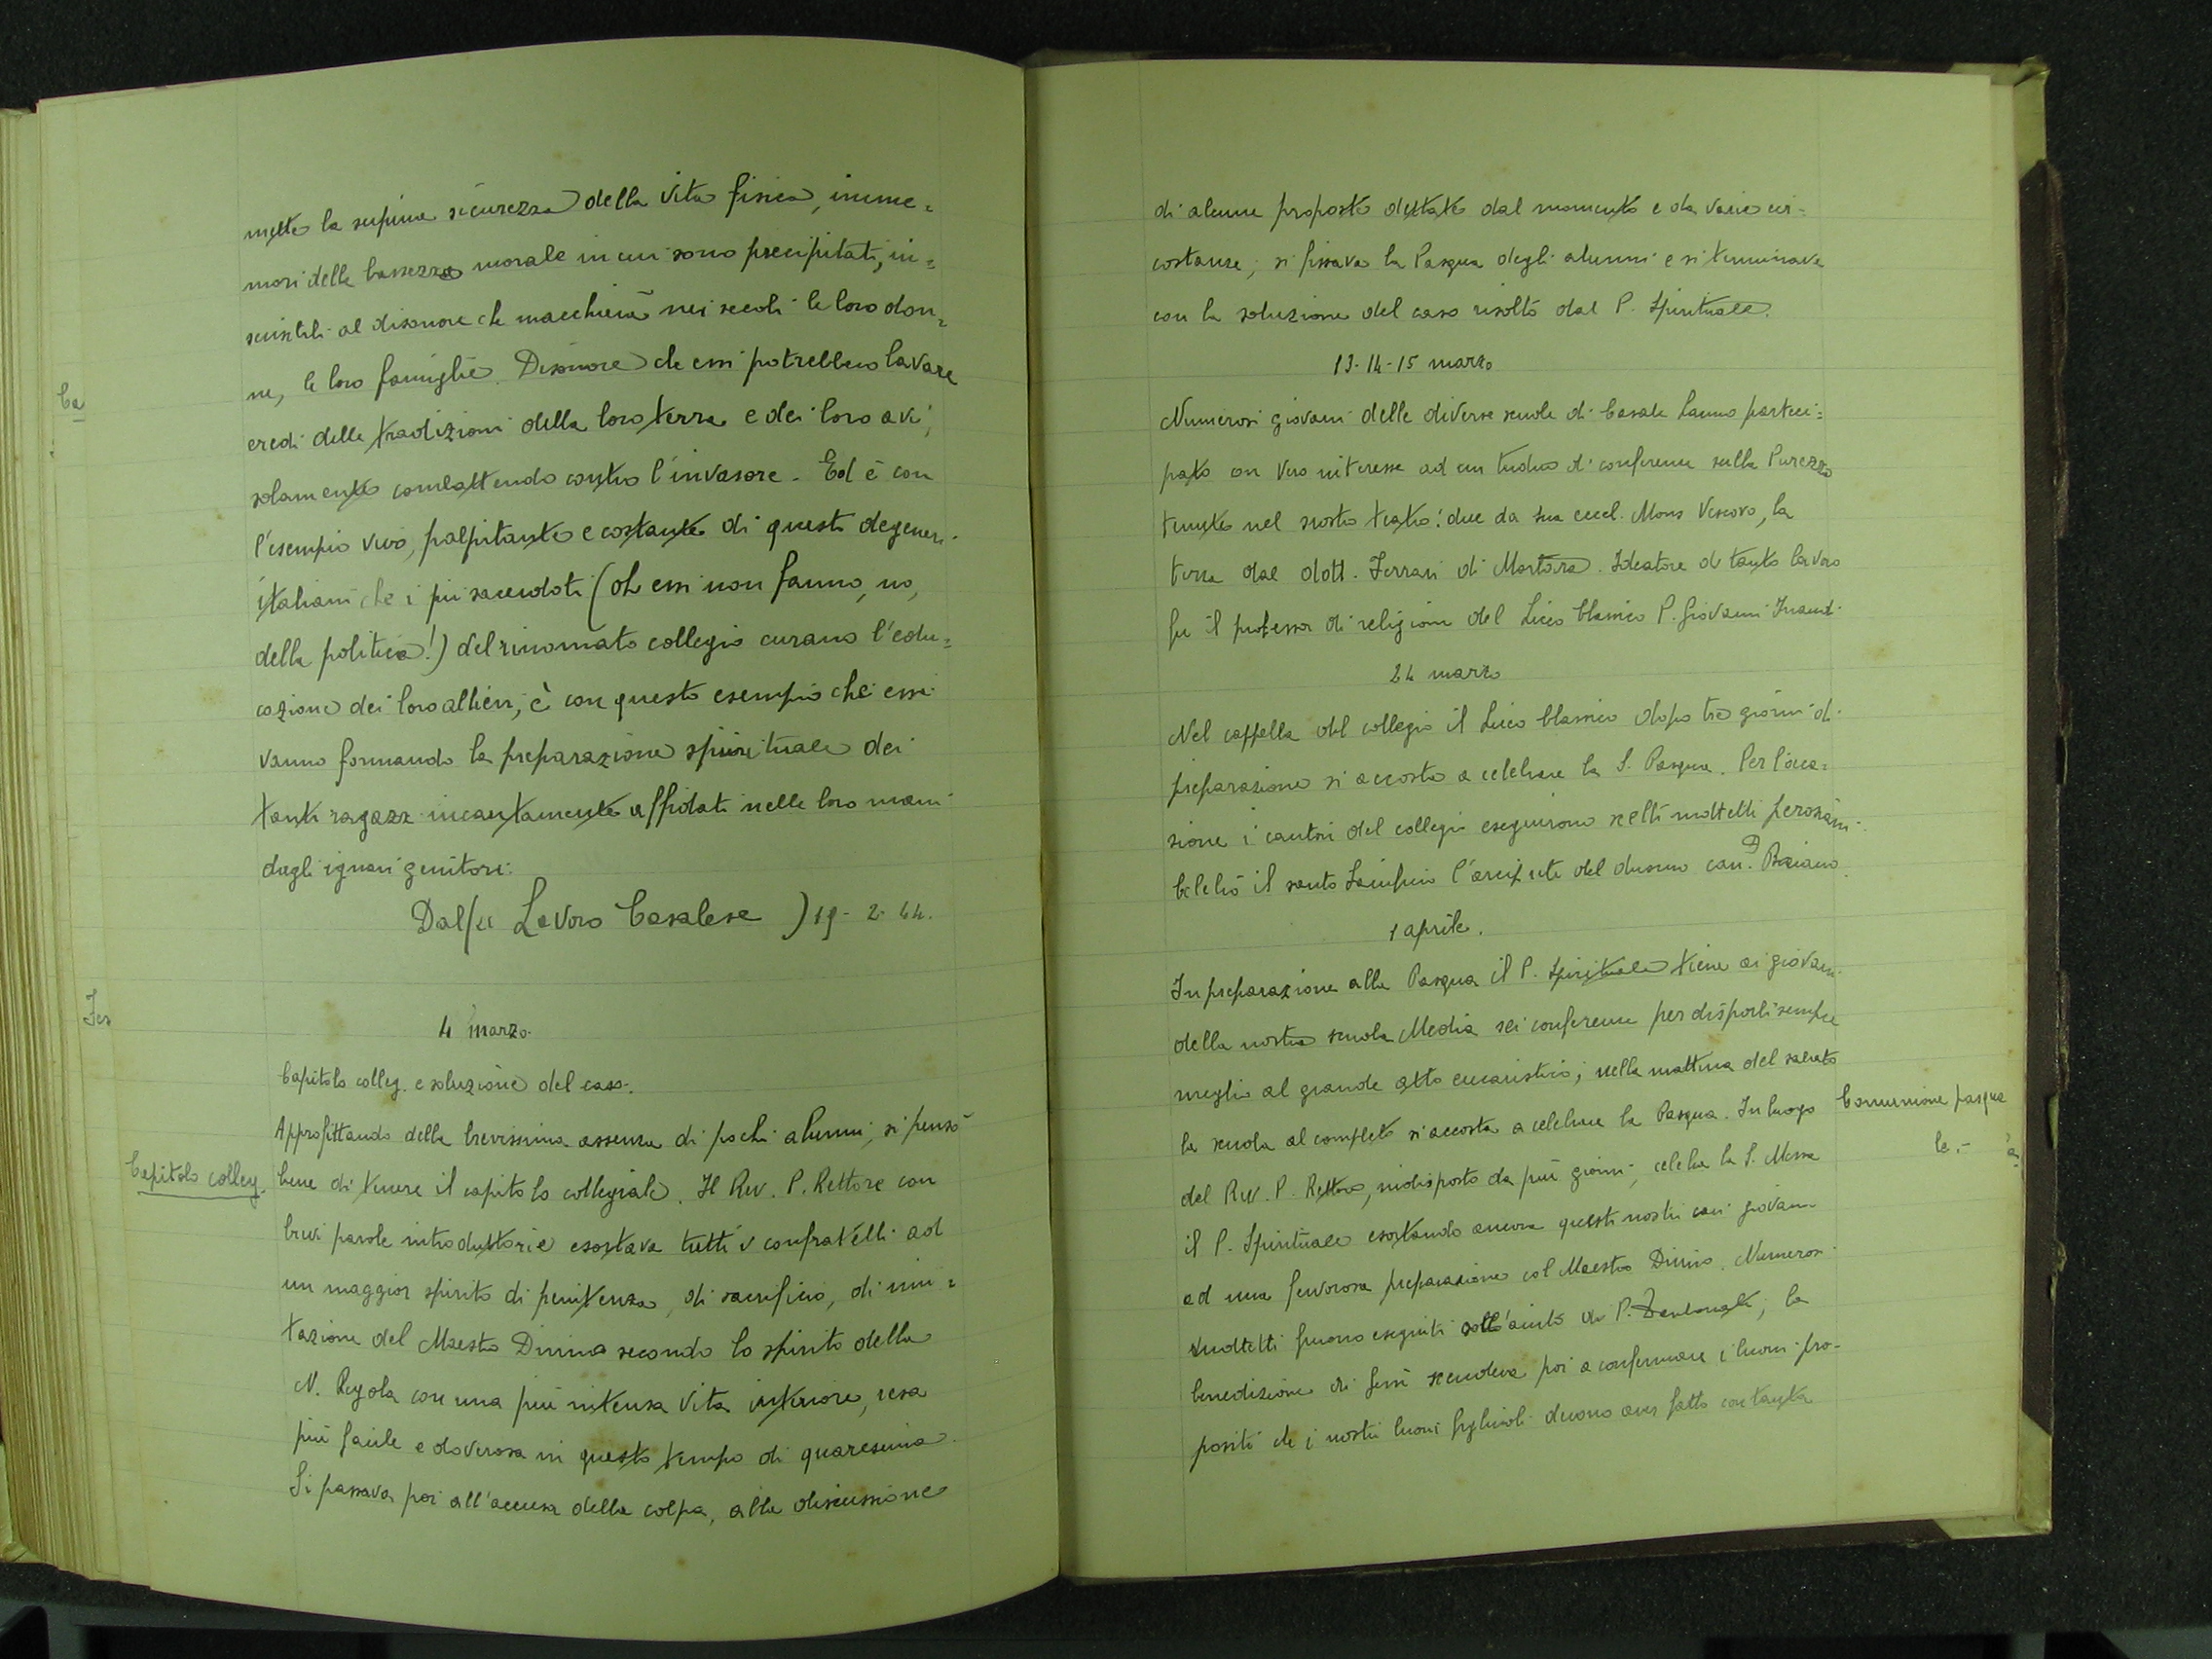 mette la supina sicurezza della vita fisica, imme=
mori della bassezza morale in cui sono precipitati, in=
sensibili al disonore che macchierà nei secoli le loro don=
ne, le loro famiglie. Disonore che essi potrebbero lavare
eredi delle tradizioni della loro terra e dei loro avi,
solamente combattendo contro l'invasore. Ed è con
l'esempio vivo, palpitante e costante di questi degeneri
italiani che i pii sacerdoti (oh essi non fanno, no,
della politica!) del rinomato collegio curano l'edu=
cazione dei loro allievi; è con questo esempio che essi
vanno formando la preparazione spirituale dei
tanti ragazzi incautamente affidati nelle loro mani
dagli ignari genitori.
Dal (Il Lavoro Casalese) 19-2-44.
4 marzo.
Capitolo colleg. e soluzione del caso.
Approfittando della brevissima assenza di pochi alunni, si pensò
Capitolo colleg. bene di tenere il capitolo collegiale. Il Rev. P. Rettore con
brevi parole introduttorie esortava tutti i confratelli ad
un maggior spirito di penitenza, di sacrificio, di imi=
tazione del Maestro Divino secondo lo spirito della
N. Regola con una più intensa vita interiore, resa
più facile e doverosa in questo tempo di quaresima.
Si passava poi all'accusa della colpa, alla discussione
Ca
Fes
di alcune proposte dettate dal momento e da varie cir=
costanze; si fissava la Pasqua degli alunni e si terminava
con la soluzione del caso risolto dal P. Spirituale.
13-14-15 marzo
Numerosi giovani delle diverse scuole di Casale hanno parteci=
pato con vivo interesse ad un triduo di conferenze sulla Purezza
tenute nel nostro teatro: due da sua eccel. Mons Vescovo, la
terza dal dott. Ferrari di Mortara. Ideatore di tanto lavoro
fu il professor di religione del Liceo Classico P. Giovanni
24 marzo
Nel cappella del collegio il Liceo Classico dopo tre giorni di
preparazione si accosta a celebrare la S. Pasqua. Per l'occa=
sione i cantori del collegio eseguirono scelti mottetti perosiani.
Celebrò il santo Sacrificio l'arciprete del duomo can.
1 aprile.
In preparazione alla Pasqua il P. Spirituale tiene ai giovani
della nostra scuola Media sei conferenze per disporli sempre
meglio al grande atto eucaristico; nella mattina del sabato
la scuola al completo si accosta a celebrare la Pasqua. In luogo
Comunione pasqua
le.-
del Rev. P. Rettore, indisposto da più giorni, celebra la S. Messa
il P. Spirituale esortando ancora questi nostri cari giovani
ad una fervorosa preparazione col Maestro Divino. Numerosi
mottetti furono eseguiti coll'aiuto di P. la
benedizione di Gesù scendeva poi a confermare i buoni pro-
positi che i nostri buoni figliuoli devono aver fatto con tanta